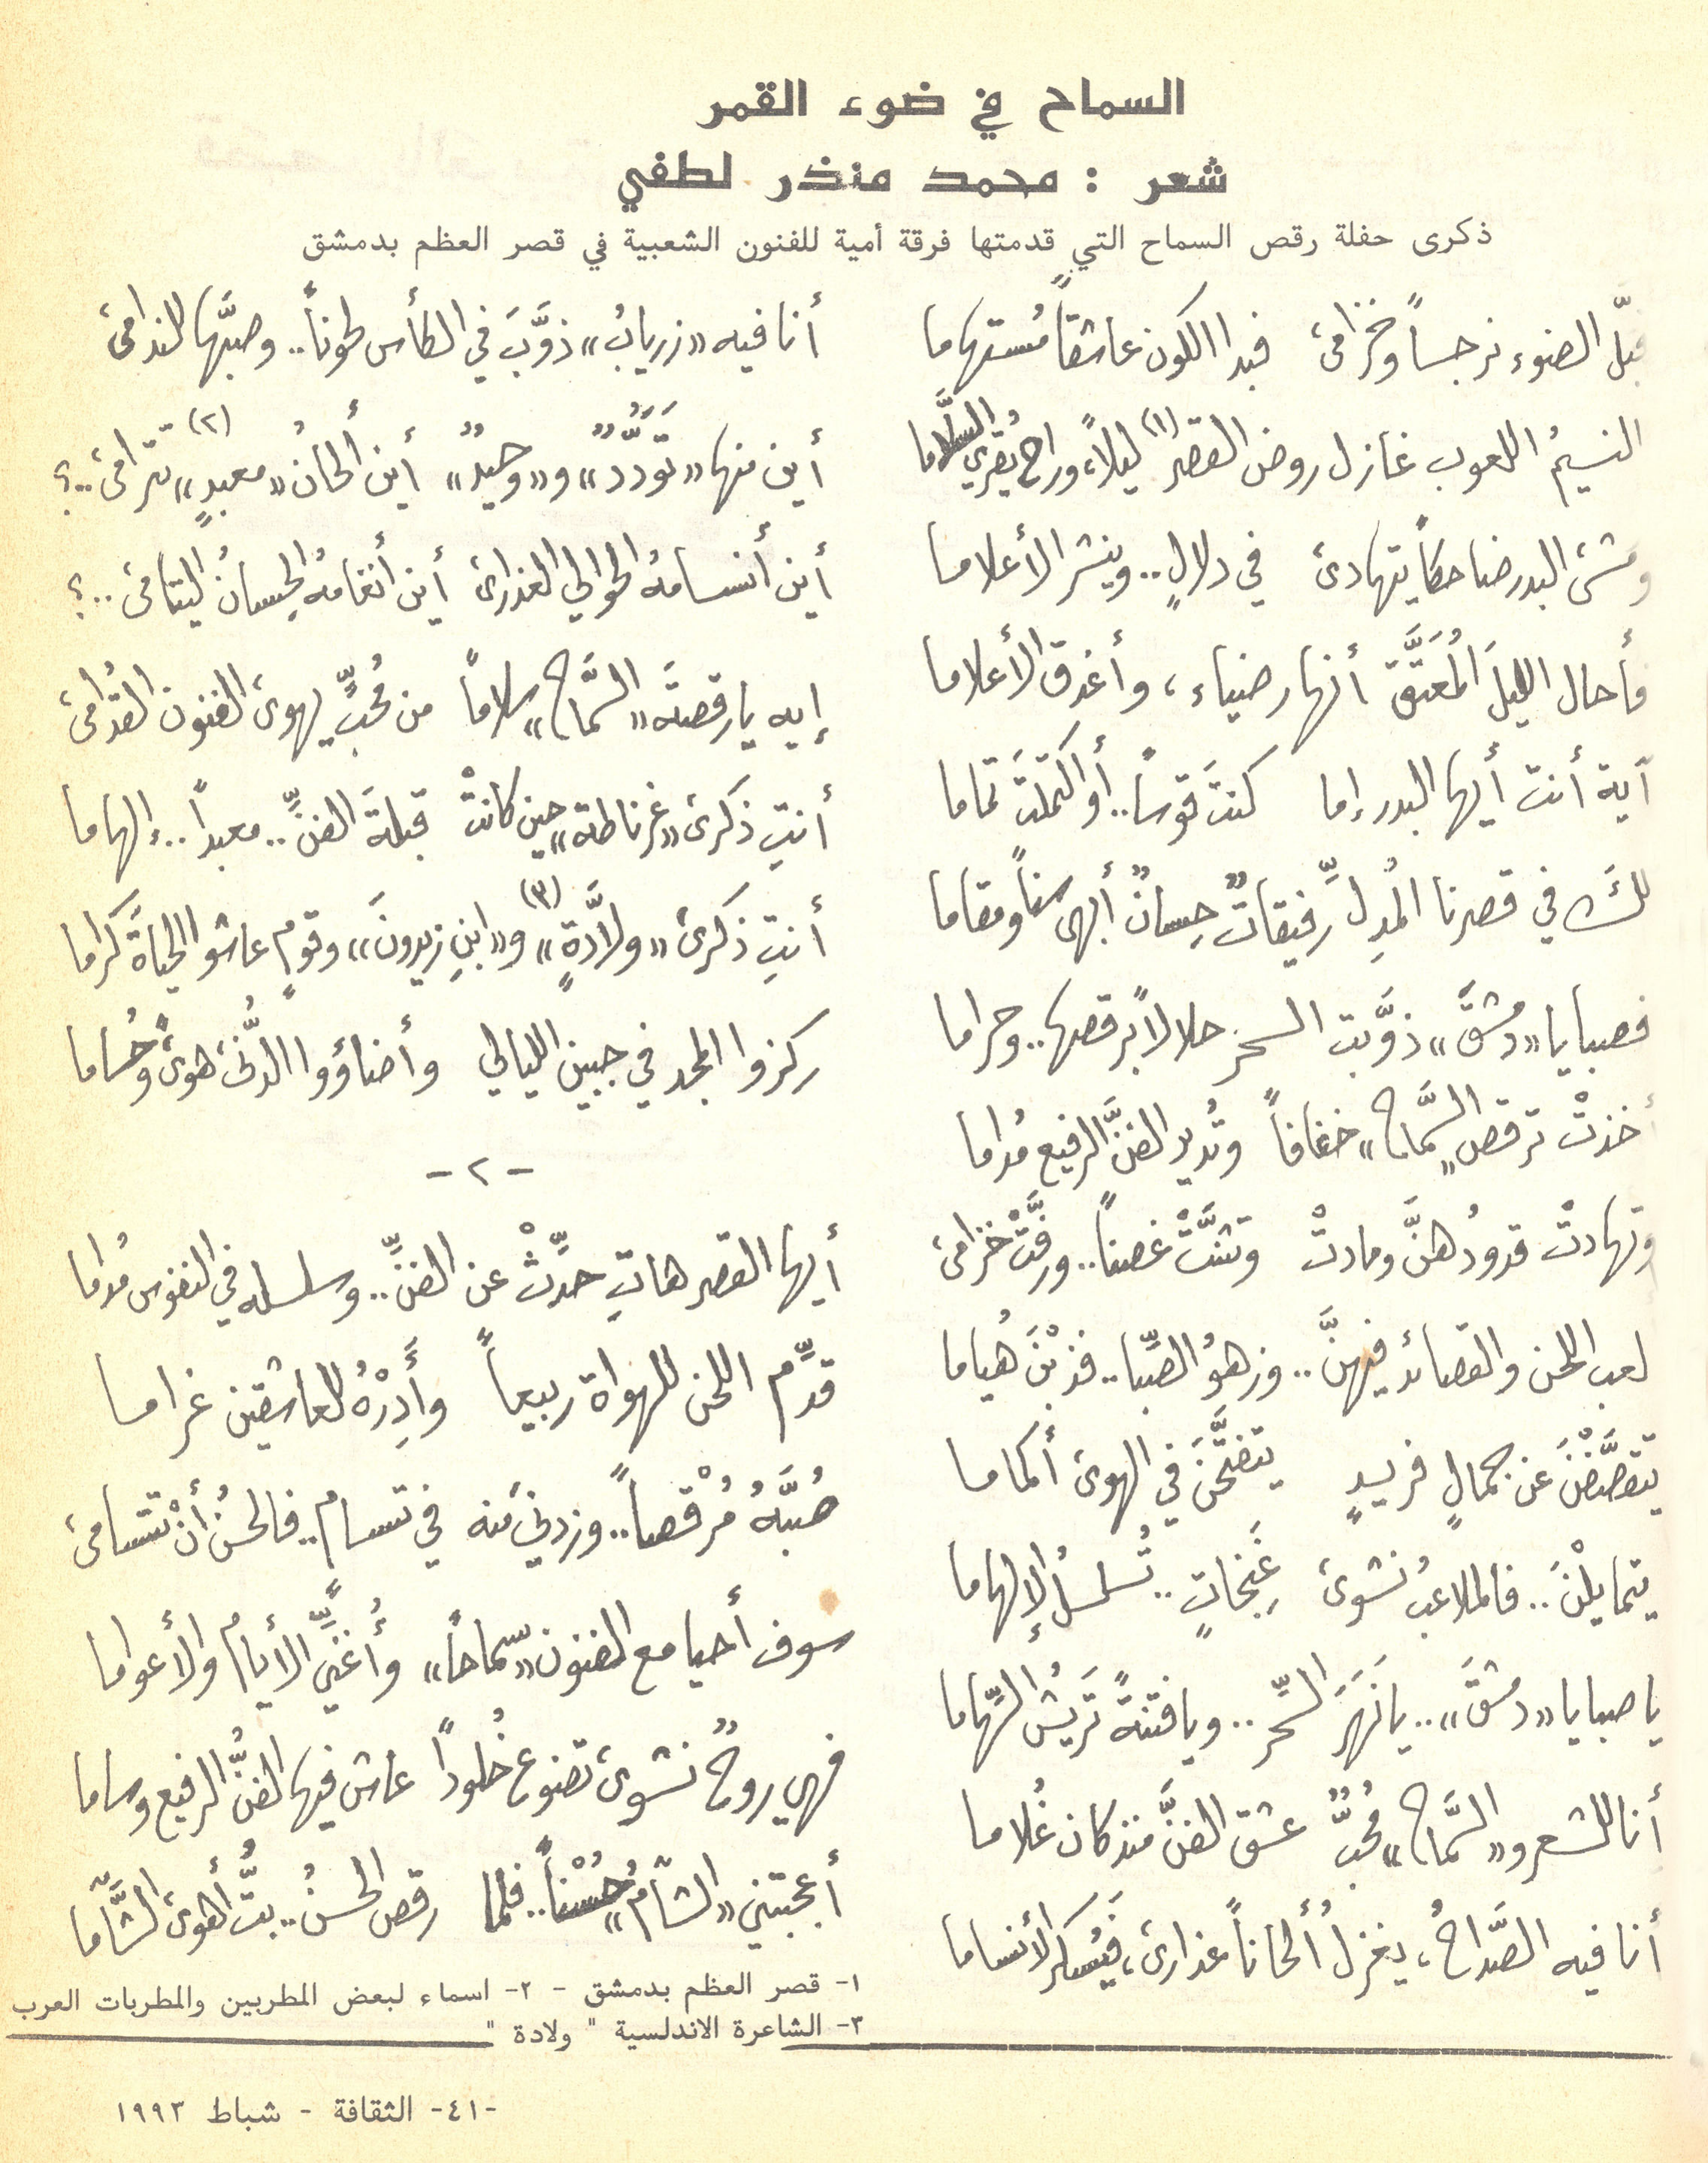 السماح في ضوء القمر
شعر : محمد منذر لطفي
ذكرى حفلة رقص السماح التي قدمتها فرقة أمية للفنون الشعبية في قصر العظم بدمشق
قبّل الضوء نرجساً وخزامى فبدا الكون عاشقاً مُستهاما
النسيمُ اللعوب غازل روض القصر (١) ليلاً، وراح يُقري السلَّاما
ومشى البدر ضاحكاً يتهادى في دلالٍ.. وينشر الأعلاما
فأحال الليلَ المُعَتَّقَ أنهار ضياء، وأغدق الأعلاما
آية أنت أيها البدر إما كنتَ قوساً.. أو اكتملتَ تماما
لكَ في قصرنا المُدِلِّ رفيقاتٌ حِسانٌ أبهى سناً ومقاما
فصبايا «دمشقَ» ذوَّبت السحر حلالاً برقصها.. وحراما
أخذتْ ترقص «السَّماح» خفافاً وتُدير الفنَّ الرفيع مُداما
وتهادتْ قدودُهنَّ ومادتْ وتثنَّتْ غصناً.. ورفَّتْ خزامى
لعب اللحن والقصائد فيهنَّ.. وزهوُ الصِّبا.. فذبْنَ هُياما
يتفضَّضْنَ عن جمالٍ فريدٍ يتفتَّحْنَ في الهوى أكماما
يتمايلْنَ.. فالملاعبُ نشوى غَنِجاتٍ.. تُسلسلُ الإلهاما
يا صبايا «دمشقَ».. يا نَهَرَ السِّحر.. ويا فتنةً تَريشُ السِّهاما
أنا للشعر و«السَّماح» مُحبٌّ عشق الفنَّ منذ كان غُلاما
أنا فيه الصَّداحُ، يغزلُ ألحاناً عذارى، فيُسكر الأنساما
أنا فيه «زريابُ» ذوَّبَ في الكأس لحوناً.. وصبَّها للندامى
أين منها «تَوَدُّدٌ» و«وحيدٌ» أين ألحانُ «معبدٍ» تترامى..؟ (٢)
أين أنسامهُ الحوالي العذارى أين أنغامهُ الحِسانُ اليتامى..؟
إيه يا رقصةَ «السَّماح» سلاماً من مُحبٍّ يهوى الفنون القُدامى
أنتِ ذكرى «غرناطة» حين كانتْ قبلةَ الفنِّ.. معبداً.. إلهاما
أنتِ ذكرى «ولاَّدةٍ» (٣) و«ابنِ زيدونَ» وقومٍ عاشوا الحياةَ كراما
ركزوا المجد في جبين الليالي وأضاؤوا الدُّنى هوىً وحُساما
-٢-
أيها القصر هاتِ حدِّثْ عن الفنِّ.. وسلسله في النفوس مُداما
قدِّم اللحن للهواة ربيعاً وأَدِرْهُ للعاشقين غراما
صُبَّهُ مُرْقصاً.. وزدنيَ منه في تسام.. فالحسنُ أنْ تتسامى
سوف أحيا مع الفنون «سماحاً» وأُغنِّي الأيامَ والأعواما
فهي روحٌ نشوى تضوع خُلوداً عاش فيها الفنُّ الرفيع وساما
أعجبتني «الشآم» حُسْناً.. فلما رقص الحسنُ.. بتُّ أهوى الشَّآما
١- قصر العظم بدمشق - ٢- اسماء لبعض المطربين والمطربات العرب
٣- الشاعرة الاندلسية " ولادة "
-٤١- الثقافة - شباط ١٩٩٣